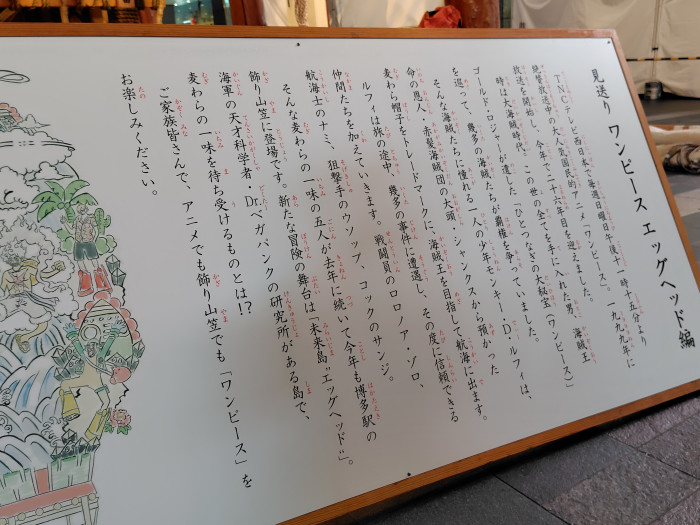 見送り ワンピース エッグヘッド編
TNCテレビ西日本で毎週日曜日午後十一時十五分より
絶賛放送中の大人気国民的アニメ「ワンピース」。一九九九年に
放送を開始し、今年で二十六年目を迎えました。
時は大海賊時代。この世の全てを手に入れた男、海賊王
ゴールド・ロジャーが遺した「ひとつなぎの大秘宝(ワンピース)」
を巡って、幾多の海賊たちが覇権を争っていました。
そんな海賊たちに憧れる一人の少年モンキー・D・ルフィは、
命の恩人、赤髪海賊団の大頭・シャンクスから預かった
麦わら帽子をトレードマークに、海賊王を目指して航海に出ます。
ルフィは旅の途中、幾多の事件に遭遇し、その度に信頼できる
仲間たちを加えていきます。戦闘員のロロノア・ゾロ、
航海士のナミ、狙撃手のウソップ、コックのサンジ。
そんな麦わらの一味の五人が去年に続いて今年も博多駅の
飾り山笠に登場です。新たな冒険の舞台は“未来島”エッグヘッド”。
海軍の天才科学者・Dr.ベガパンクの研究所がある島で、
麦わらの一味を待ち受けるものとは!?
ご家族皆さんで、アニメでも飾り山笠でも「ワンピース」を
お楽しみください。